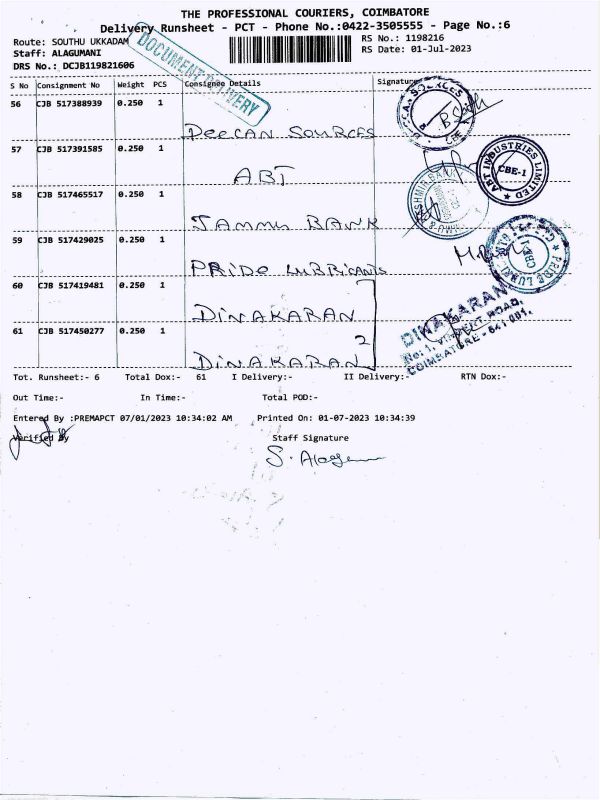 THE PROFESSIONAL COURIERS, COIMBATORE
Delivery Runsheet - PCT - Phone No.:0422-3505555 - Page No.:6
Route: SOUTHU UKKADAM
RS No.: 1198216
Staff: ALAGUMANI
RS Date: 01-Jul-2023
DRS No.: DCJB119821606
DOCUMENT DELIVERY
S No Consignment No Weight PCS Consignee Details Signature
56 CJB 517388939 0.250 1
DEECAN SOURCES
57 CJB 517391585 0.250 1
ABT
ABT INDUSTRIES LIMITED
CBE-1
58 CJB 517465517 0.250 1
JAMMU BANK
59 CJB 517429025 0.250 1
PRIDE LUBRICANTS
60 CJB 517419481 0.250 1
DINAKARAN
2
61 CJB 517450277 0.250 1
DINAKARAN
DINAKARAN
COIMBATORE - 641 001.
Tot. Runsheet:- 6 Total Dox:- 61 I Delivery:- II Delivery:- RTN Dox:-
Out Time:- In Time:- Total POD:-
Entered By :PREMAPCT 07/01/2023 10:34:02 AM Printed On: 01-07-2023 10:34:39
Verified By Staff Signature